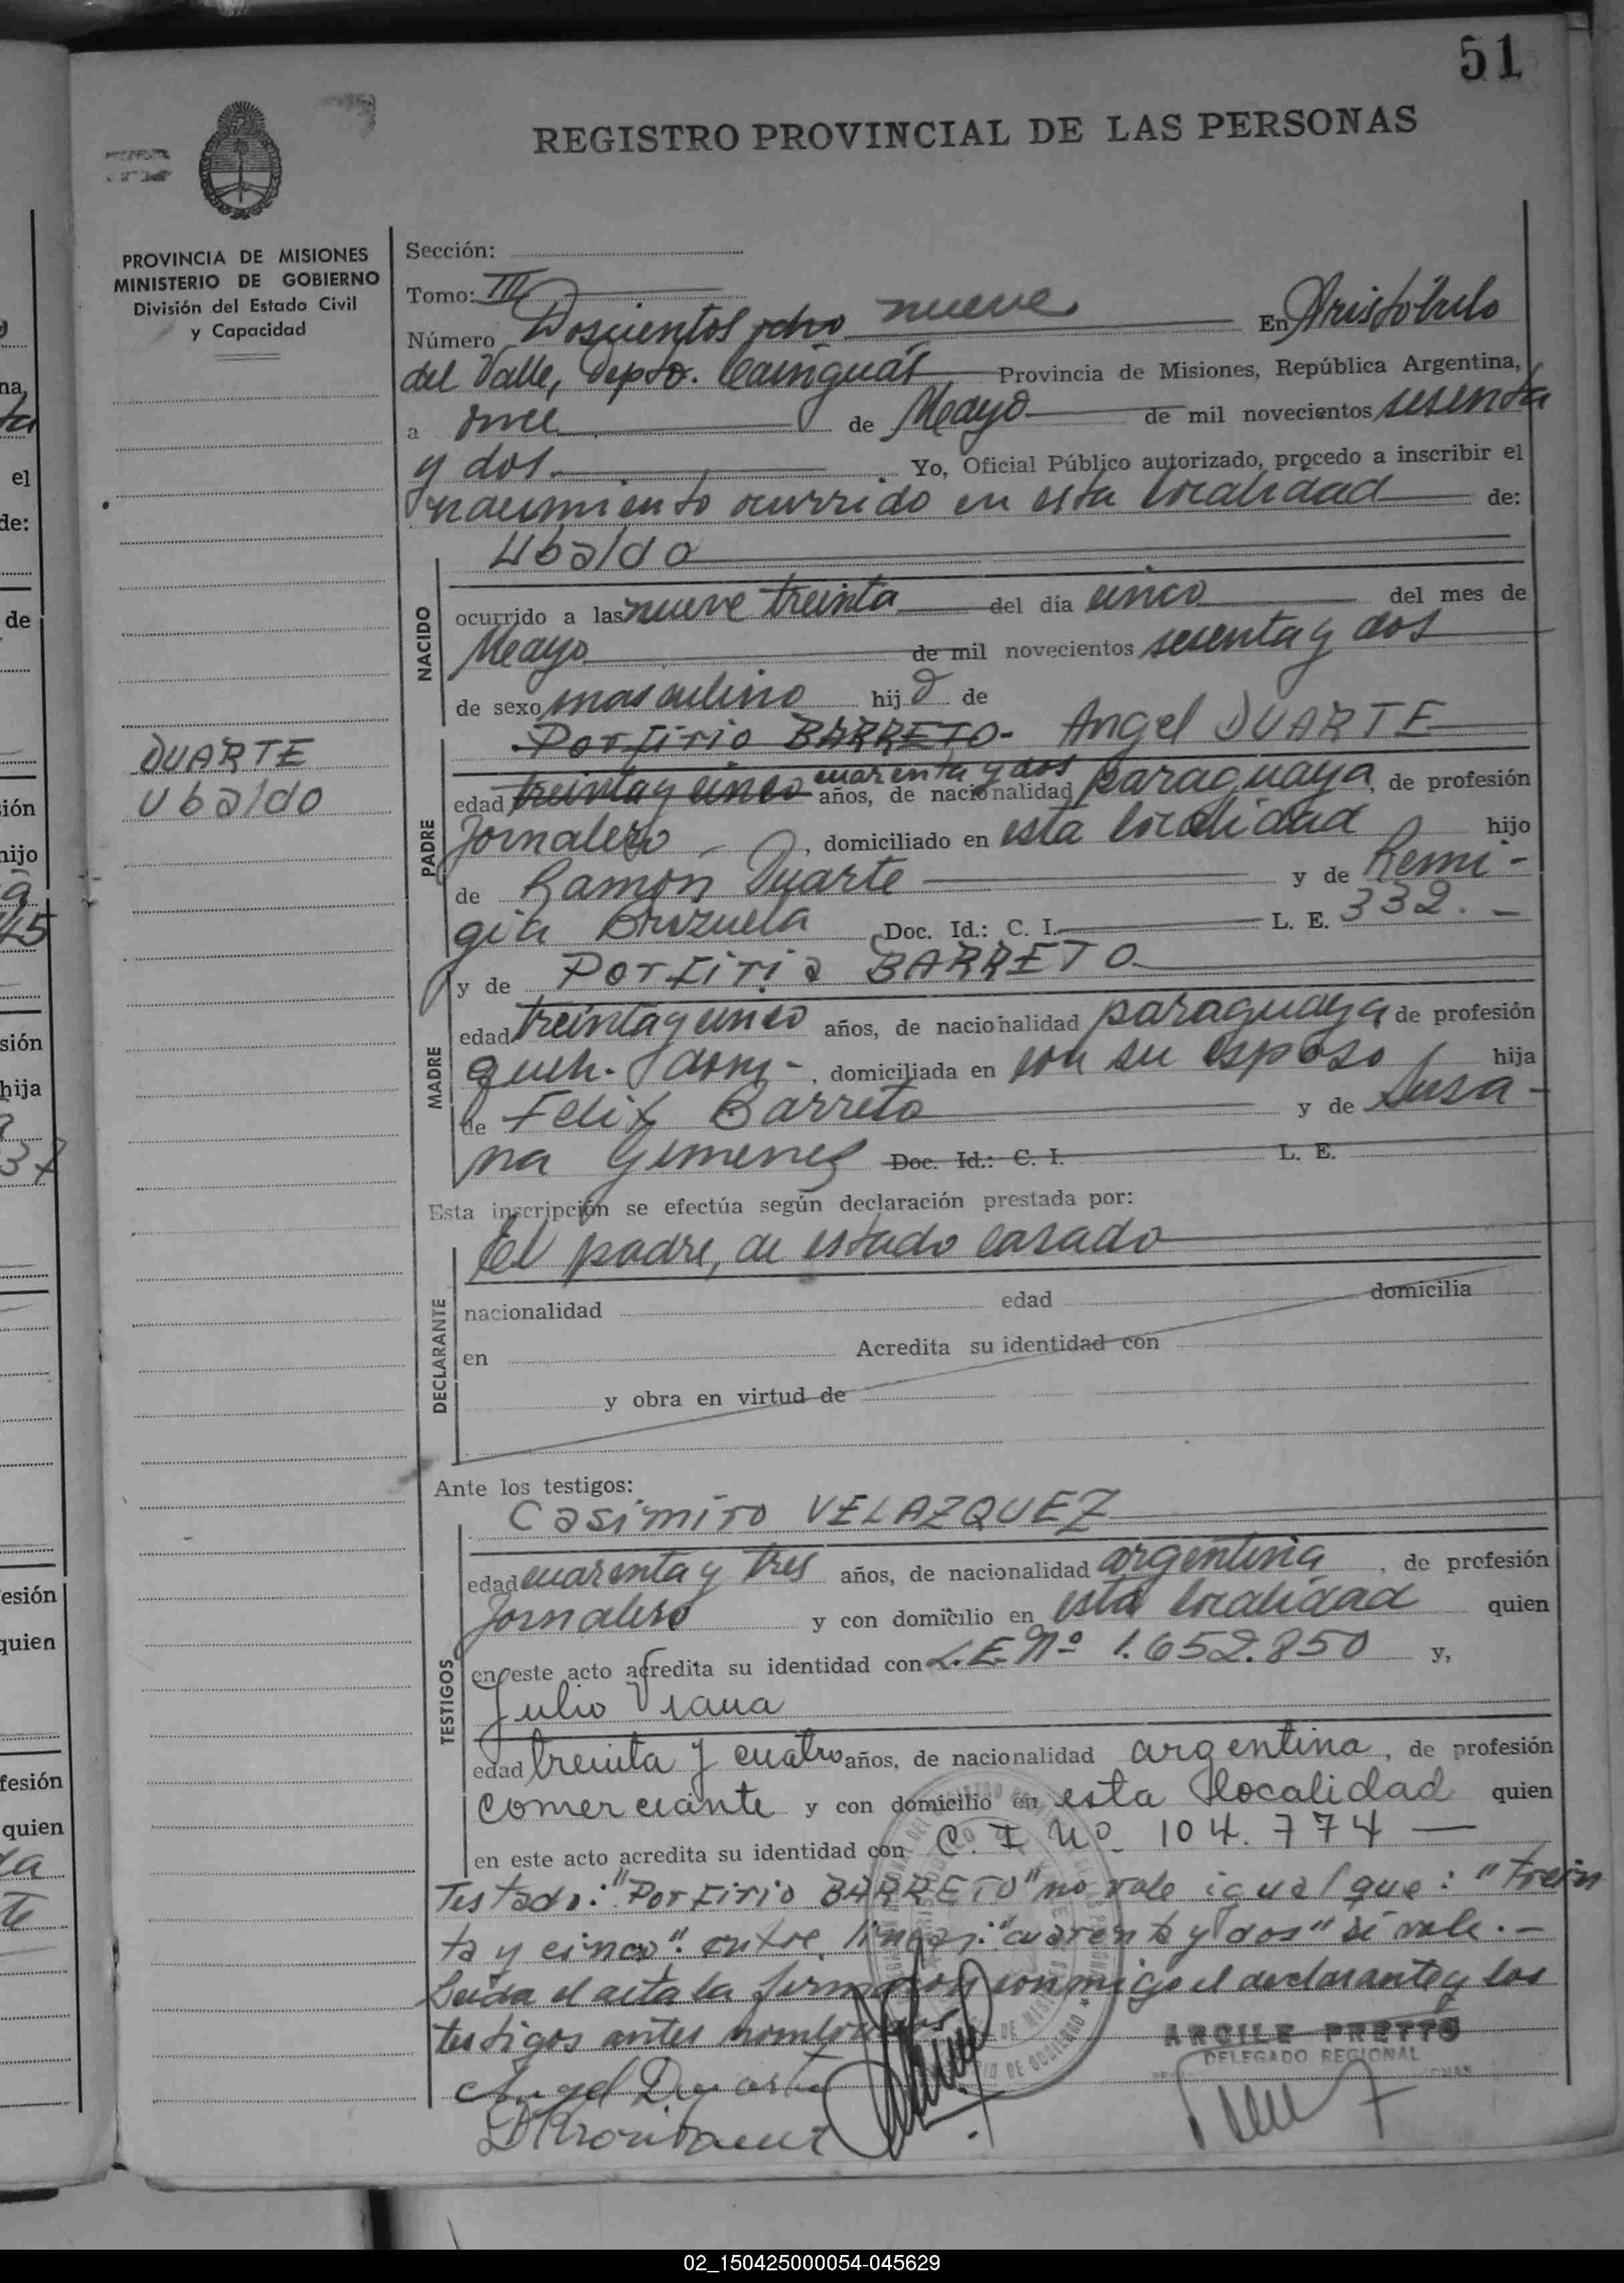 51
REGISTRO PROVINCIAL DE LAS PERSONAS
PROVINCIA DE MISIONES
MINISTERIO DE GOBIERNO
División del Estado Civil
y Capacidad
DUARTE
Ubaldo
Sección:
Tomo: III
Número Doscientos ocho nueve En Aristóbulo
del Valle, Depto. Cainguás Provincia de Misiones, República Argentina,
a once de Mayo de mil novecientos sesenta
y dos. Yo, Oficial Público autorizado, procedo a inscribir el
nacimiento ocurrido en esta localidad de:
Ubaldo
NACIDO
ocurrido a las nueve treinta del día cinco del mes de
Mayo de mil novecientos sesenta y dos
de sexo masculino hijo de
Porfirio BARRETO- Angel DUARTE
PADRE
cuarenta y dos
edad treinta y cinco años, de nacionalidad paraguaya, de profesión
Jornalero, domiciliado en esta localidad hijo
de Ramon Duarte y de Remi-
gia Brizuela Doc. Id.: C. I. L. E. 332. -
y de Porfiria BARRETO
MADRE
edad treinta y cinco años, de nacionalidad paraguaya de profesión
queh. dom-, domiciliada en con su esposo hija
de Felix Barreto y de Susa-
na Gimenez Doc. Id.: C. I. L. E.
Esta inscripción se efectúa según declaración prestada por:
El padre, de estado casado
DECLARANTE
nacionalidad edad domicilia
en Acredita su identidad con
y obra en virtud de
Ante los testigos:
Casimiro VELAZQUEZ
TESTIGOS
edad cuarenta y tres años, de nacionalidad argentina, de profesión
Jornalero y con domicilio en esta localidad quien
en este acto acredita su identidad con L.E. Nº 1.652.850 y,
Julio Viana
edad treinta y cuatro años, de nacionalidad argentina, de profesión
comerciante y con domicilio en esta localidad quien
en este acto acredita su identidad con C. I Nº 104.774 —
Testado: "Porfirio BARRETO" no vale igual que: "trein
ta y cinco". entre lineas: "cuarenta y dos" si vale.-
Leida el acta la firman conmigo el declarante y los
testigos antes nombrados
ARCILE PRETTO
DELEGADO REGIONAL
Angel Duarte
02_150425000054-045629